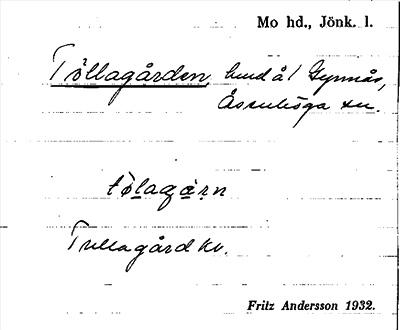 Mo hd., Jönk. l.
Töllagården, hmd å! Gynnås,
Åsenhöga sn.
tølagɑ̄ṇ
Tullagård kv.
Fritz Andersson 1932.